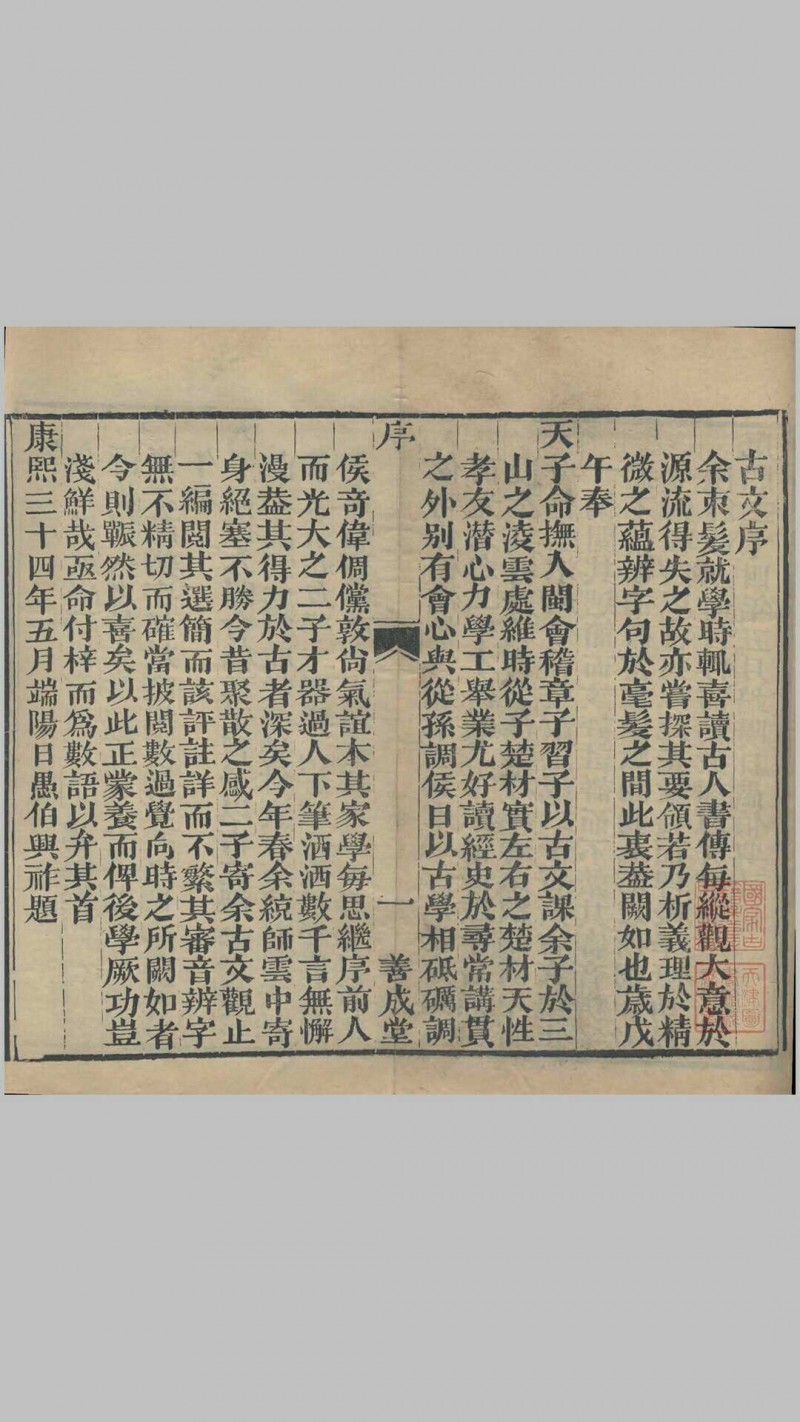 古文序
余束髮就學時輒喜讀古人書傳每縱觀大意於
源流得失之故亦嘗探其要領若乃析義理於精
微之蘊辨字句於毫髮之間此衷葢闕如也歲戊
午奉
天子命撫入閩會稽章子習子以古文課余子於三
山之凌雲處維時從子楚材實左右之楚材天性
孝友潛心力學工舉業尤好讀經史於尋常講貫
之外别有會心與從孫調侯日以古學相砥礪調
序
一
善成堂
侯奇偉倜儻敦尙氣誼本其家學每思繼序前人
而光大之二子才器過人下筆洒洒數千言無懈
漫葢其得力於古者深矣今年春余統師雲中寄
身絕塞不勝今昔聚散之感二子寄余古文觀止
一編閱其選簡而該評註詳而不繁其審音辨字
無不精切而確當披閱數過覺向時之所闕如者
今則冁然以喜矣以此正蒙養而俾後學厥功豈
淺鮮哉亟命付梓而爲數語以弁其首
康熙三十四年五月端陽日愚伯興祚題